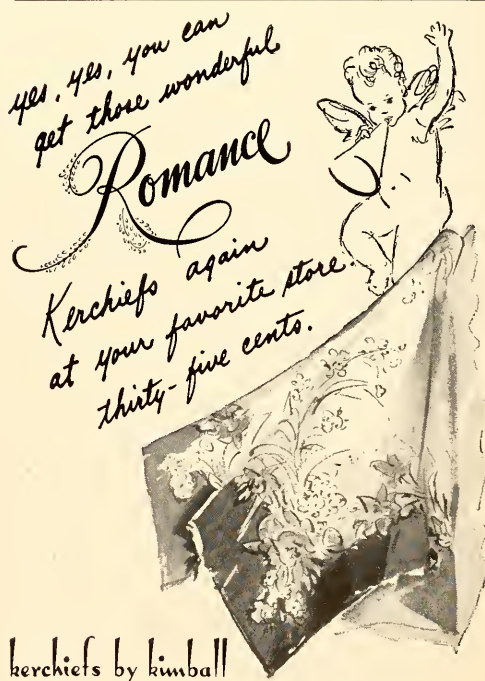 yes, yes, you can
get those wonderful
Romance
Kerchiefs again
at your favorite store.
thirty-five cents.
kerchiefs by kimball